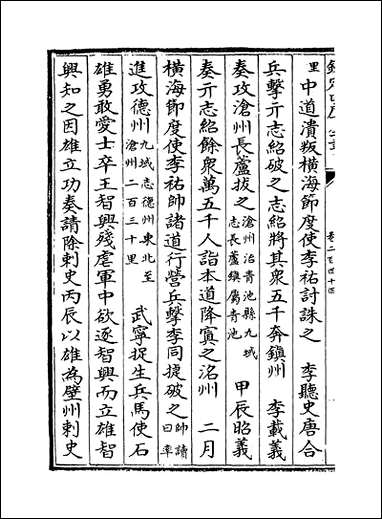 卷二百四十四
里 中道潰叛橫海節度使李祐討誅之　李聽史唐合
兵擊亓志紹破之志紹將其衆五千奔鎮州　李載義
奏攻滄州長蘆拔之
滄州治青池縣九域
志長蘆鎮屬青池
甲辰昭義
奏亓志紹餘衆萬五千人詣本道降寘之洺州　二月
橫海節度使李祐帥諸道行營兵擊李同捷破之
帥讀
曰率
進攻德州
九域志德州東北至
滄州二百三十里
武寧捉生兵馬使石
雄勇敢愛士卒王智興殘虐軍中欲逐智興而立雄智
興知之因雄立功奏請除刺史丙辰以雄為壁州刺史